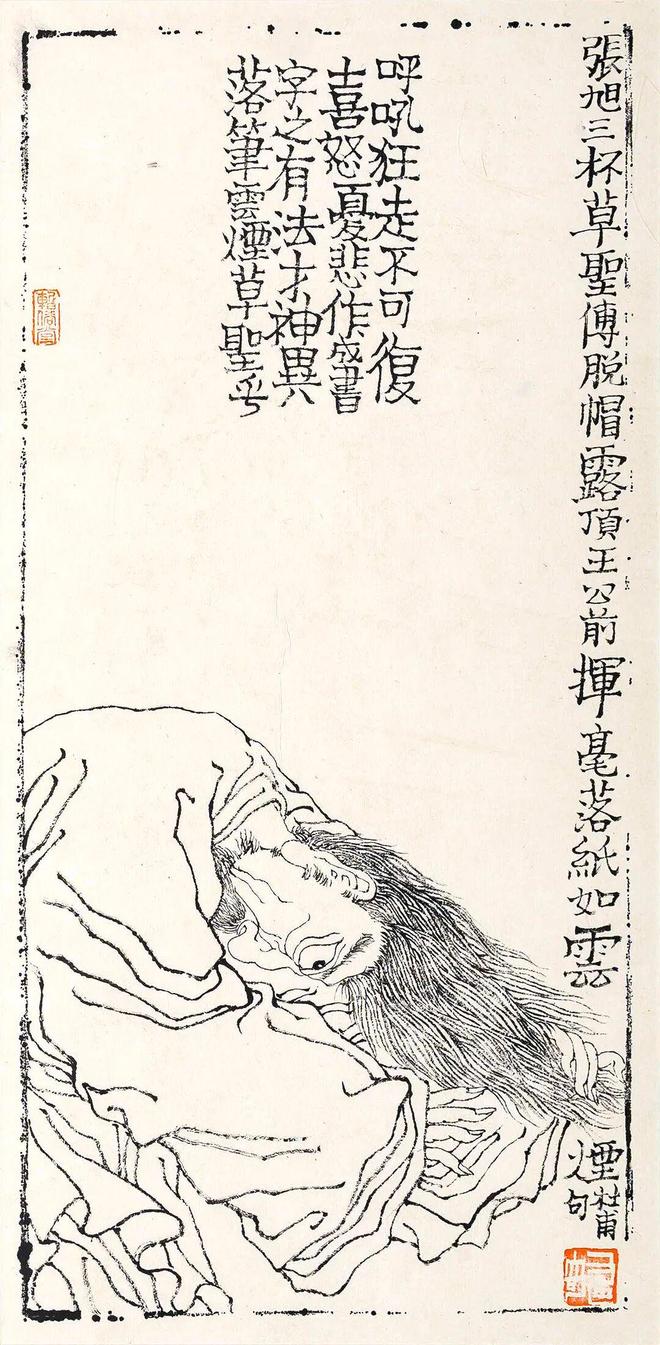 張旭三杯草聖傳脱帽露頂王公前揮毫落紙如雲煙
杜甫句
呼吼狂走不可復
喜怒憂悲作成書
字之有法才神異
落筆雲煙草聖乎